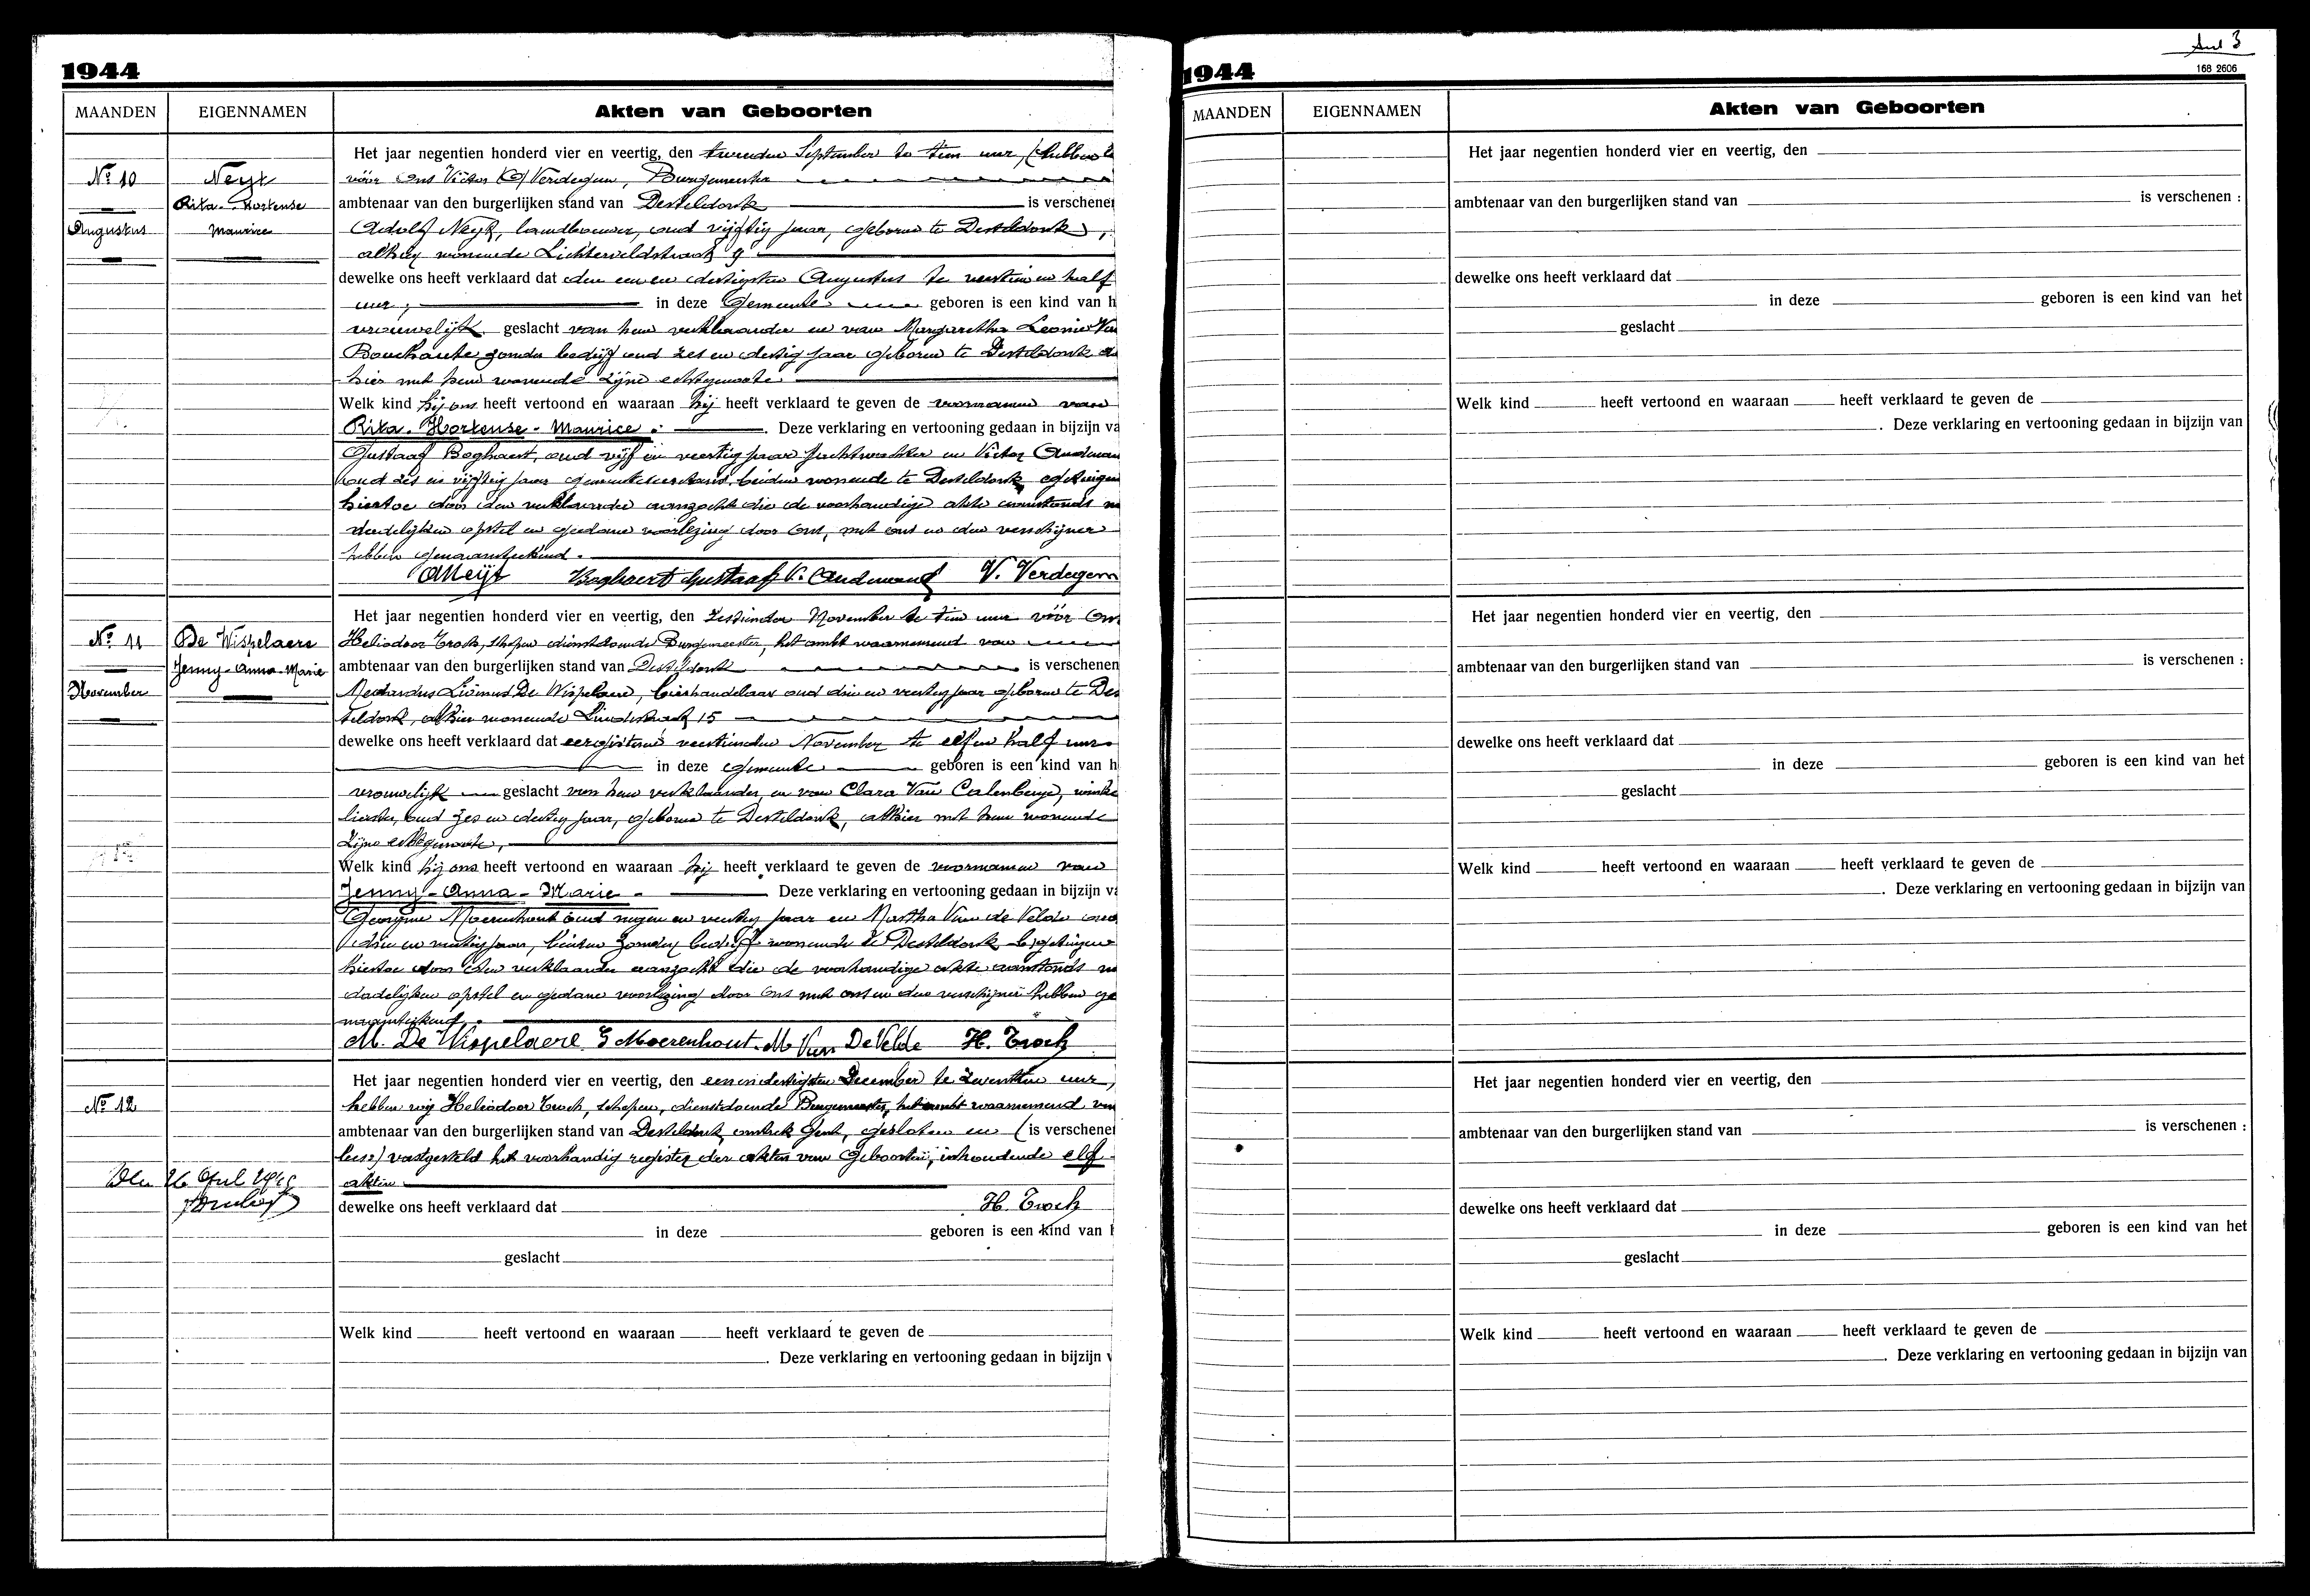 1944
MAANDEN EIGENNAMEN Akten van Geboorten
Het jaar negentien honderd vier en veertig, den tweeden September te tien uur,
No 10 Neyt vóór Ons Victor Verdegem, Burgemeester
Rita-Hortense ambtenaar van den burgerlijken stand van Desteldonk is verschenen
Augustus Maurice Adolf Neyt, landbouwer, oud vijftig jaar, geboren te Desteldonk,
alhier wonende Lichterveldstraat 9
dewelke ons heeft verklaard dat den een en dertigsten Augustus te veertien en half
uur, in deze Gemeente geboren is een kind van h
vrouwelijk geslacht van hem verklaarder en van Margaretha Leonie Van
Bouchaute zonder bedrijf oud zes en dertig jaar geboren te Desteldonk
hier met hem wonende zijne echtgenoote
Welk kind hij ons heeft vertoond en waaraan hij heeft verklaard te geven de voornamen van
Rita-Hortense-Maurice. Deze verklaring en vertooning gedaan in bijzijn va
Gustaaf Boghaert, oud vijf en veertig jaar en Victor Audenaert
oud zes en vijftig jaar beiden wonende te Desteldonk
hiertoe door den verklaarder aanzocht die de voorhandige akte aanstonds na
dadelijken opstel en gedane voorlezing door Ons, met ons en den verschijner
hebben genaamteekend.
A Neyt Boghaert Gustaaf V. Audenaert V. Verdegem
Het jaar negentien honderd vier en veertig, den zestienden November te tien uur vóór Ons
No 11 De Wispelaere Heliodoor Troch, schepen dienstdoende Burgemeester, het ambt waarnemend van
Jenny-Anna-Marie ambtenaar van den burgerlijken stand van Desteldonk is verschenen
November Medardus Livinus De Wispelaere, bierhandelaar oud drie en veertig jaar geboren te Des
teldonk, alhier wonende Lindestraat 15
dewelke ons heeft verklaard dat eergisteren veertienden November te elf en half uur
in deze gemeente geboren is een kind van h
vrouwelijk geslacht van hem verklaarder en van Clara Van Calenberge, winke
lierster, oud zes en dertig jaar, geboren te Desteldonk, alhier met hem wonende
zijne echtgenoote,
Welk kind hij ons heeft vertoond en waaraan hij heeft verklaard te geven de voornamen van
Jenny-Anna-Marie. Deze verklaring en vertooning gedaan in bijzijn va
Georgine Moerenhout oud negen en veertig jaar en Martha Van de Velde oud
drie en jaar, beiden zonder bedrijf wonende te Desteldonk
hiertoe door den verklaarder aanzocht die de voorhandige akte aanstonds na
dadelijken opstel en gedane voorlezing door Ons met ons en den verschijner hebben ge
naamteekend.
M. De Wispelaere G Moerenhout. M Van De Velde H. Troch
Het jaar negentien honderd vier en veertig, den een en dertigsten December te zeventien uur,
No 12 hebben wij Heliodoor Troch, schepen, dienstdoende Burgemeester, het ambt waarnemend van
ambtenaar van den burgerlijken stand van Desteldonk, omtrek Gent, gesloten en (is verschenen
lees:) vastgesteld het voorhandig register der akten van Geboorten, inhoudende elf
akten.
dewelke ons heeft verklaard dat H. Troch
in deze geboren is een kind van h
geslacht
Welk kind heeft vertoond en waaraan heeft verklaard te geven de
. Deze verklaring en vertooning gedaan in bijzijn v
168 2606
1944
MAANDEN EIGENNAMEN Akten van Geboorten
Het jaar negentien honderd vier en veertig, den
ambtenaar van den burgerlijken stand van is verschenen :
dewelke ons heeft verklaard dat
in deze geboren is een kind van het
geslacht
Welk kind heeft vertoond en waaraan heeft verklaard te geven de
. Deze verklaring en vertooning gedaan in bijzijn van
Het jaar negentien honderd vier en veertig, den
ambtenaar van den burgerlijken stand van is verschenen :
dewelke ons heeft verklaard dat
in deze geboren is een kind van het
geslacht
Welk kind heeft vertoond en waaraan heeft verklaard te geven de
. Deze verklaring en vertooning gedaan in bijzijn van
Het jaar negentien honderd vier en veertig, den
ambtenaar van den burgerlijken stand van is verschenen :
dewelke ons heeft verklaard dat
in deze geboren is een kind van het
geslacht
Welk kind heeft vertoond en waaraan heeft verklaard te geven de
. Deze verklaring en vertooning gedaan in bijzijn van